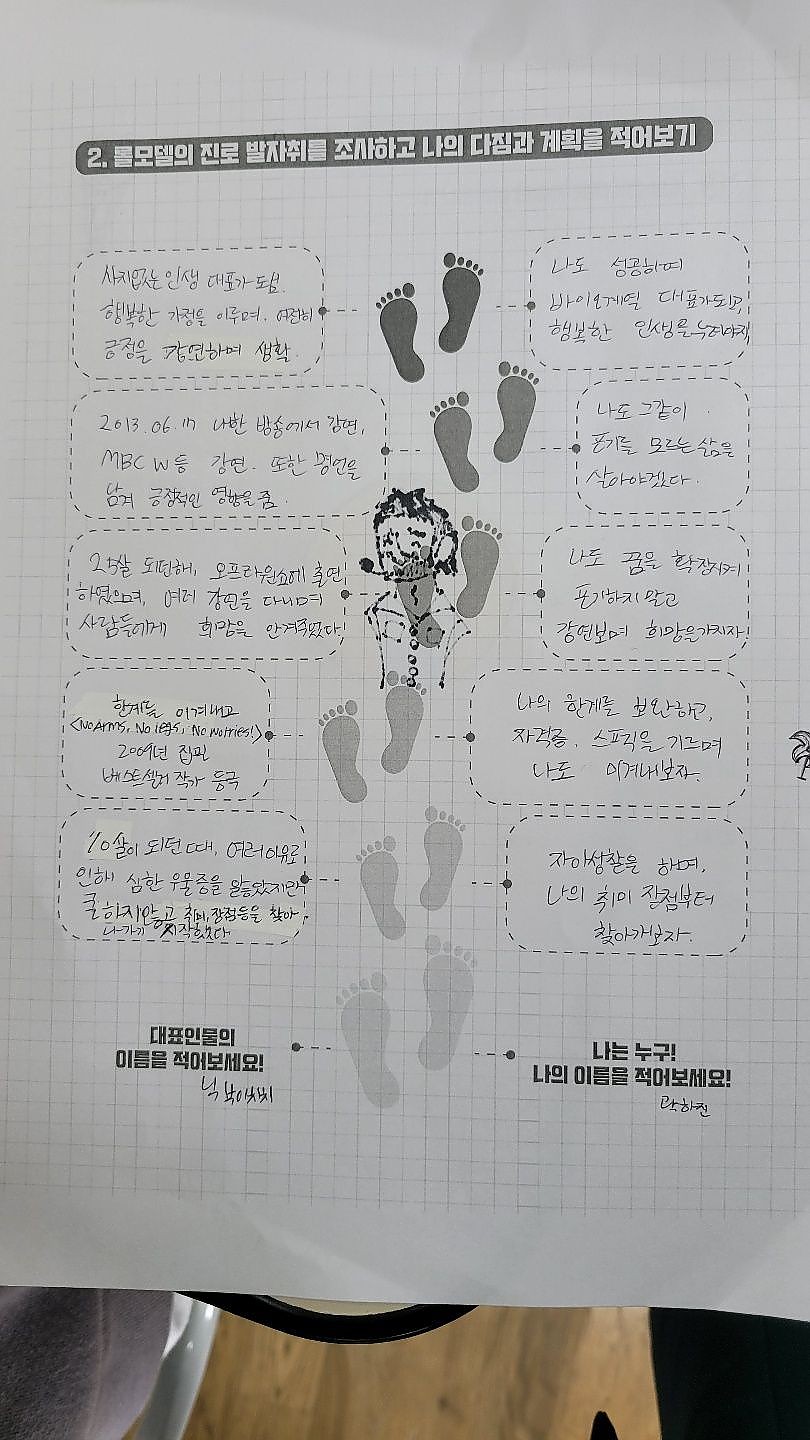 2.롤모델의 진로 발자취를 조사하고 나의 다짐과 계획을 적어보기
사지없는 인생 대표가 되심.
행복한 가정을 이루며, 여전히
긍정을 강연하며 생활.
나도 성공하여
바이오계열 대표가되고,
행복한 인생를 누려야지
2013.06.17 나한 방송에서 강연,
MBC W 등 강연. 또한 명언을
남겨 긍정적인 영향을 줌.
나도 그같이
포기를 모르는 삶을
살아야겠다.
25살 되던해, 오프라윈쇼에 출연
하였으며, 여러 강연을 다니며
사람들에게 희망을 안겨주었다!
나도 꿈을 확장시켜
포기하지말고
강연보며 희망을가지자!
한계를 이겨내고
<No Arms, No legs, No worries!>
2009년 집필
베스트셀러 작가 등극
나의 한계를 보완하고,
자격증, 스펙을 기르며
나도 이겨내보자.
10살이 되던 때, 여러이유로
인해 심한 우울증을 앓았지만
굴하지않고 취미, 장점등을 찾아
나가기 시작했다
자아성찰을 하며,
나의 취미 장점부터
찾아가보자.
대표인물의
이름을 적어보세요!
닉 부이치치
나는 누구!
나의 이름을 적어보세요!
곽하진